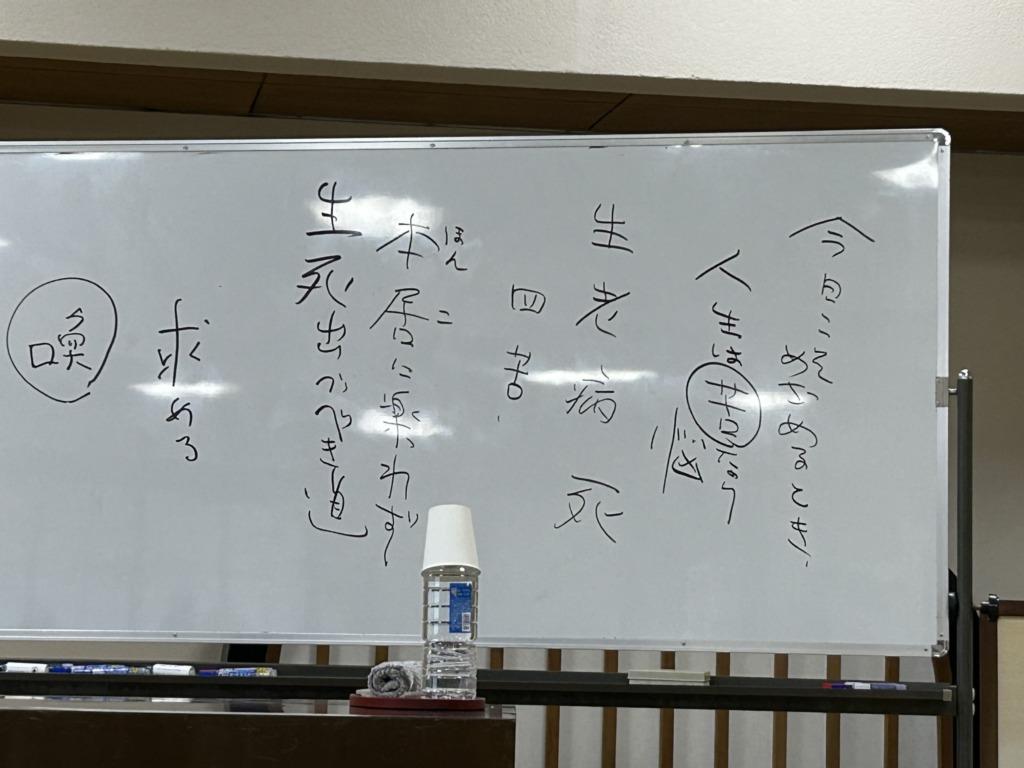 今日こそ
めざめるとき
人生は苦なり
悩
生老病死
四苦
本居に楽われず
ほんこ
生死出づべき道
求める
喚